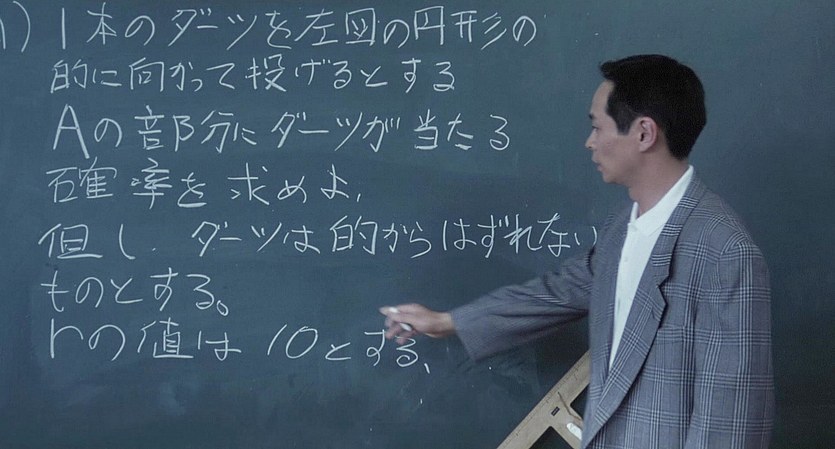 1) 1本のダーツを左図の円形の
的に向かって投げるとする
Aの部分にダーツが当たる
確率を求めよ,
但し、ダーツは的からはずれない
ものとする。
rの値は10とする、